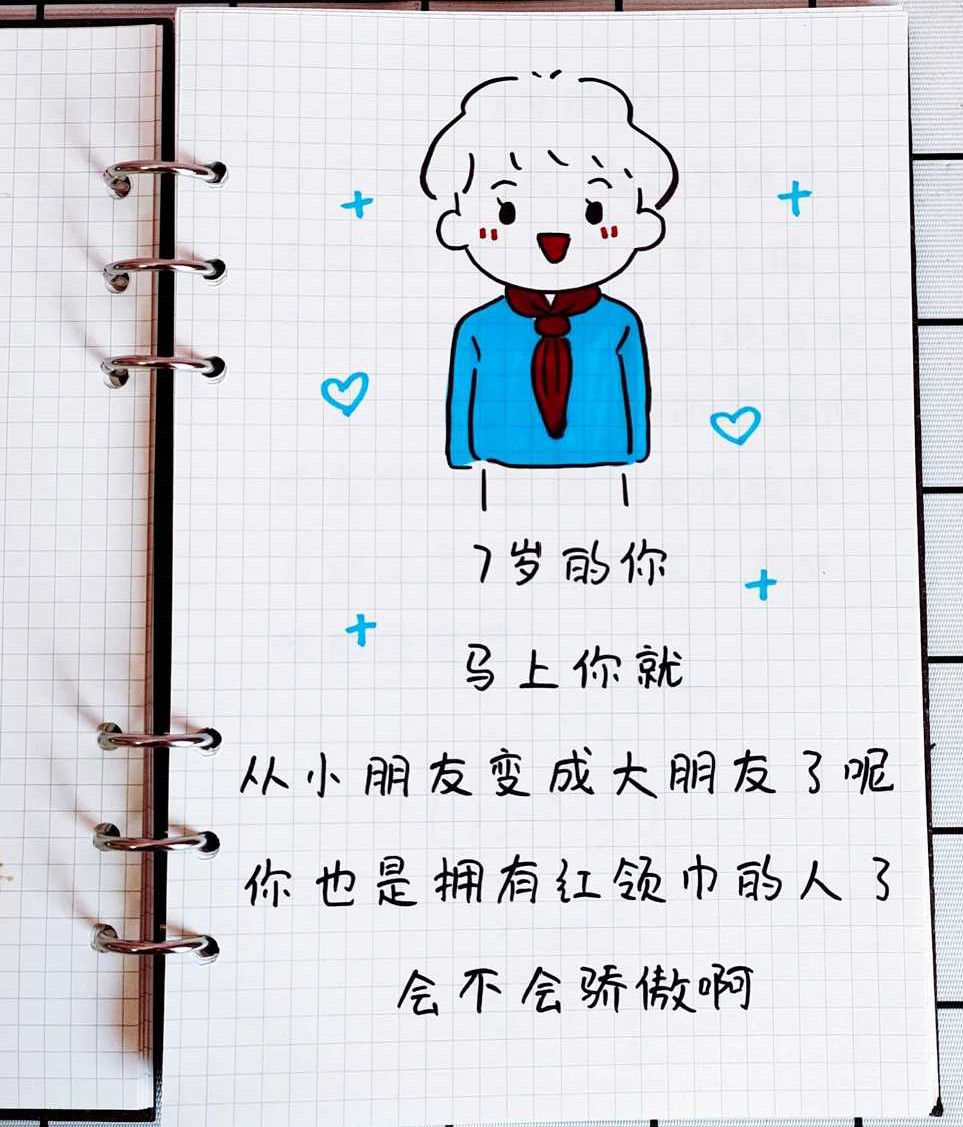 7岁的你
马上你就
从小朋友变成大朋友了呢
你也是拥有红领巾的人了
会不会骄傲啊